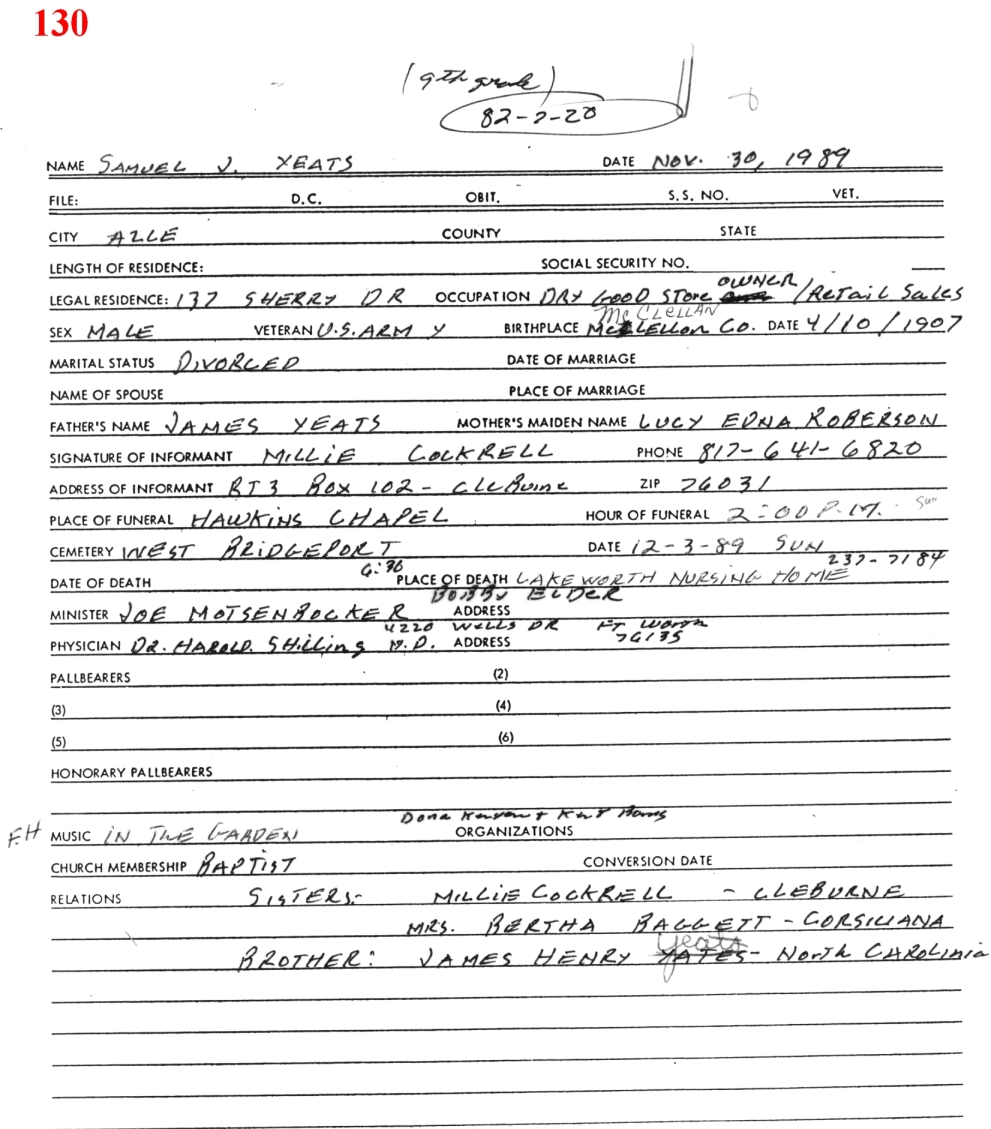 130
(9th grade)
82-7-20
NAME SAMUEL J. YEATS DATE NOV. 30, 1989
FILE: D.C. OBIT. S.S. NO. VET.
CITY AZLE COUNTY STATE
LENGTH OF RESIDENCE: SOCIAL SECURITY NO.
OWNER
LEGAL RESIDENCE: 137 SHERRY DR OCCUPATION DRY GOOD STORE /RETAIL SALES
McCLELLAN
SEX MALE VETERAN U.S. ARMY BIRTHPLACE McLELLON CO. DATE 4/10/1907
MARITAL STATUS DIVORCED DATE OF MARRIAGE
NAME OF SPOUSE PLACE OF MARRIAGE
FATHER'S NAME JAMES YEATS MOTHER'S MAIDEN NAME LUCY EDNA ROBERSON
SIGNATURE OF INFORMANT MILLIE COCKRELL PHONE 817-641-6820
ADDRESS OF INFORMANT RT 3 BOX 102 - CLEBURNE ZIP 76031
PLACE OF FUNERAL HAWKINS CHAPEL HOUR OF FUNERAL 2:00 P.M. SUN
CEMETERY WEST BRIDGEPORT DATE 12-3-89 SUN
237-7184
DATE OF DEATH 6:30 PLACE OF DEATH LAKE WORTH NURSING HOME
BOBBY ELDER
MINISTER JOE MOTSENBOCKER ADDRESS
4220 WELLS DR FT WORTH
PHYSICIAN DR. HAROLD SHILLING M.D. ADDRESS 76135
PALLBEARERS (2)
(3) (4)
(5) (6)
HONORARY PALLBEARERS
F.H MUSIC IN THE GARDEN ORGANIZATIONS
CHURCH MEMBERSHIP BAPTIST CONVERSION DATE
RELATIONS SISTERS- MILLIE COCKRELL - CLEBURNE
MRS. BERTHA BAGGETT - CORSICIANA
Yeats
BROTHER: JAMES HENRY YATES - NORTH CAROLINIA